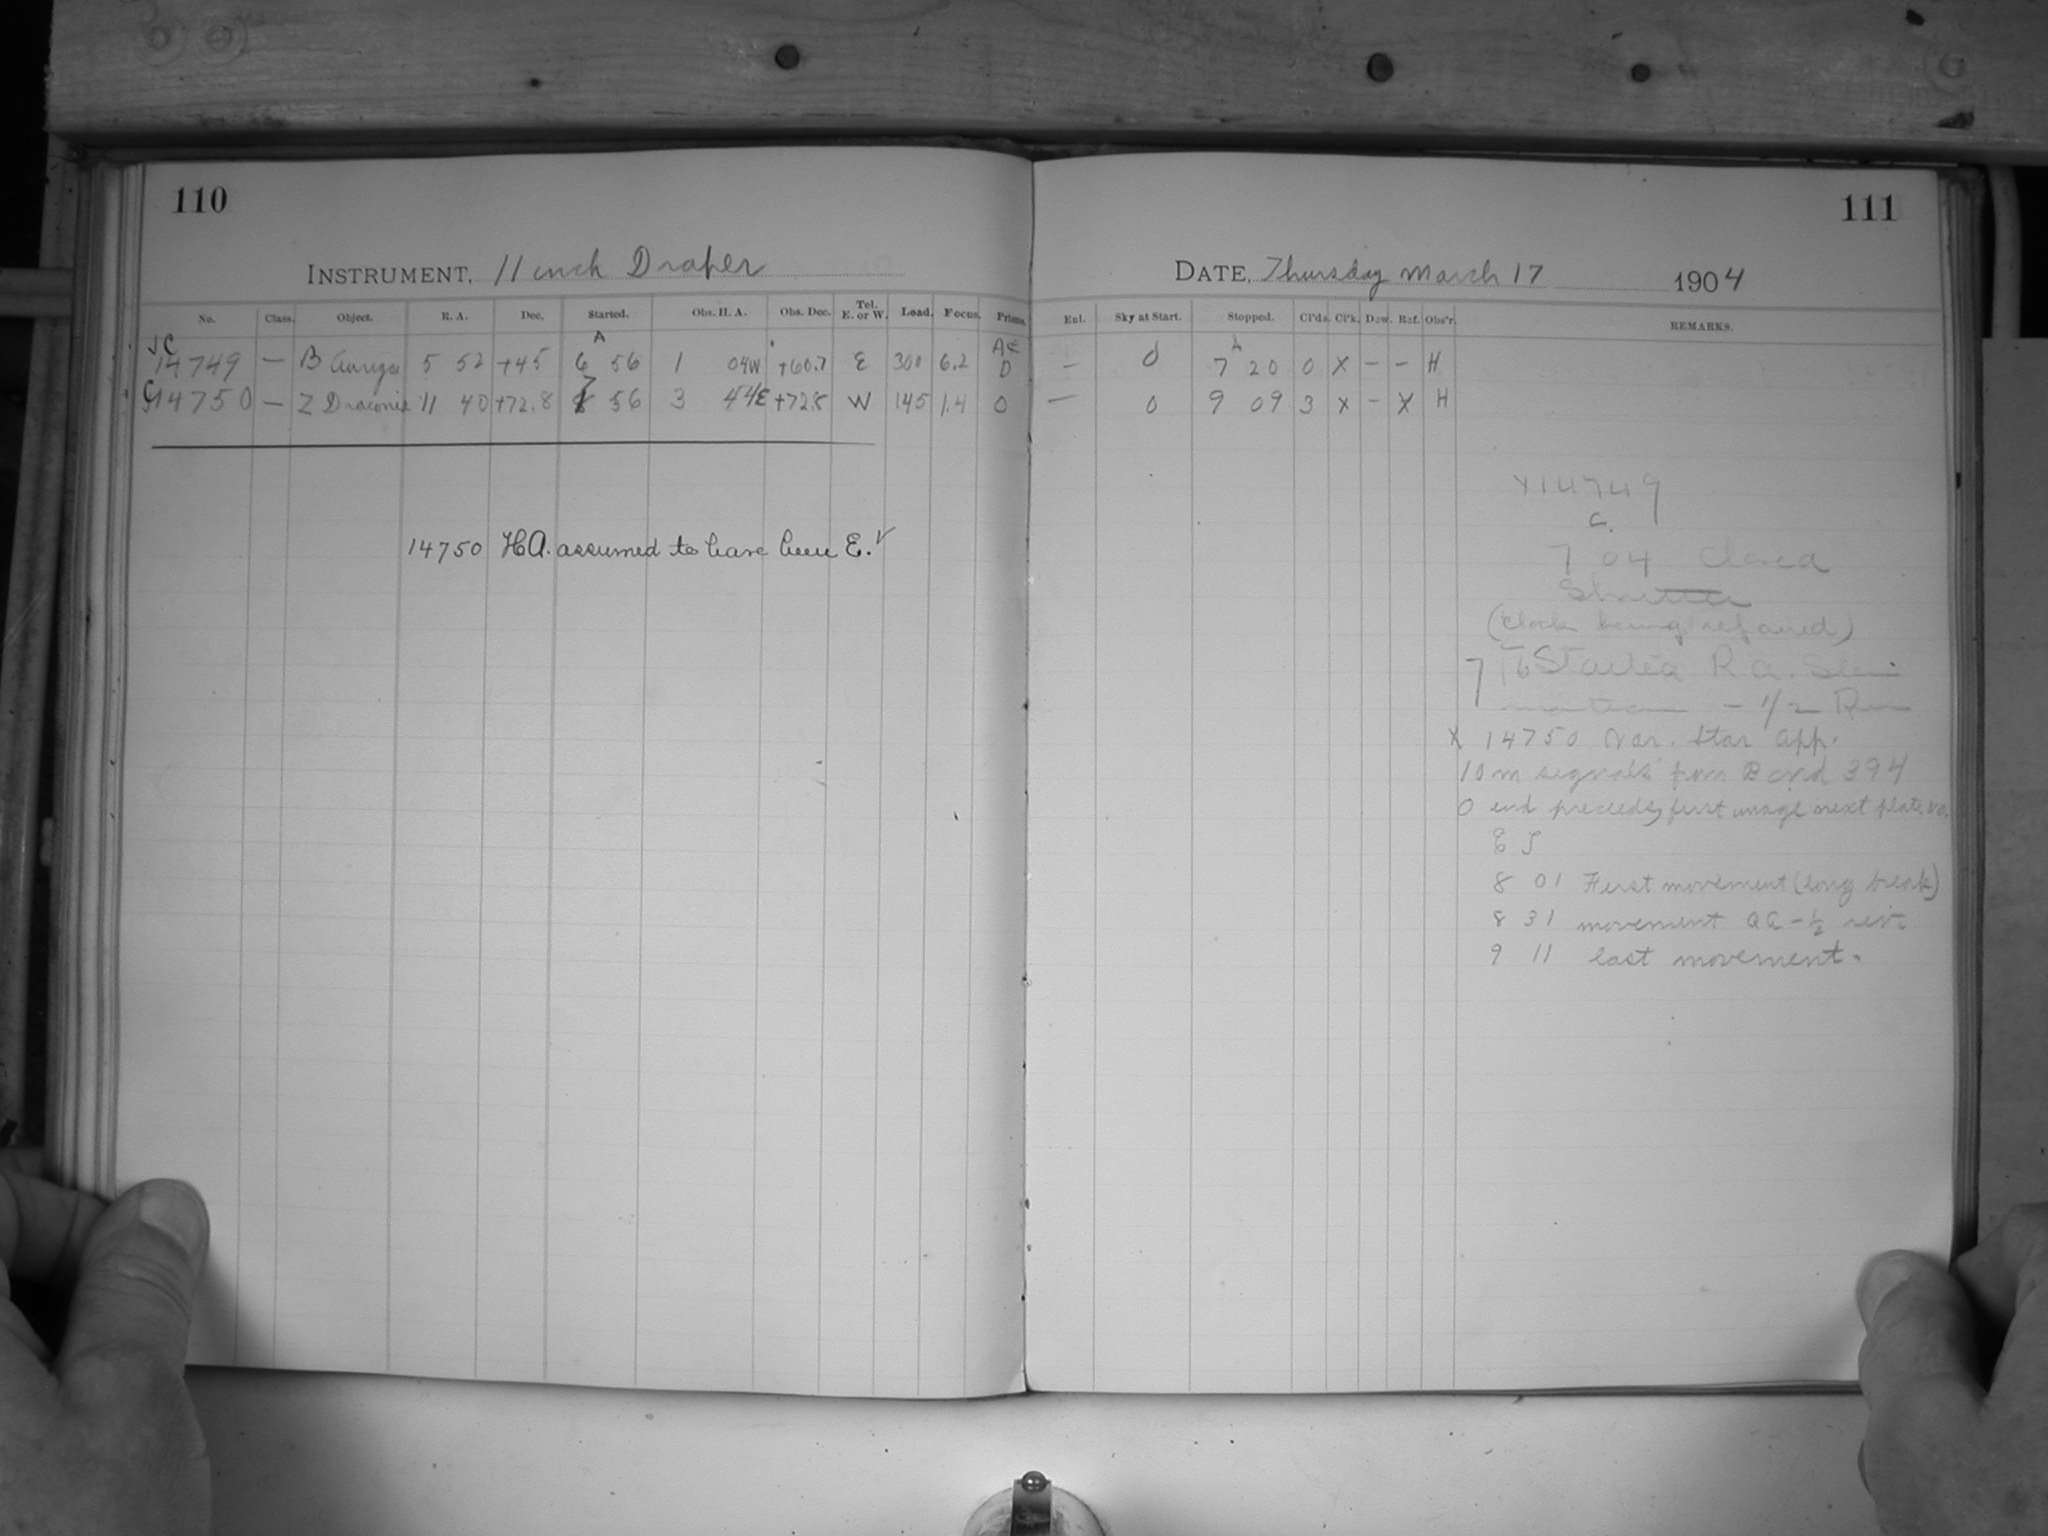 110
INSTRUMENT, 11 inch Draper
No. Class. Object. R. A. Dec. Started. Obs. H. A. Obs. Dec. Tel. E. or W. Load. Focus. Prisms.
14749 — B Aurigae 5 52 +45 A 6 56 1 04W +60.7 E 300 6.2 D
14750 — Z Draconis 11 40 +72.8 7 56 3 44E +72.8 W 145 1.4 0
14750 H.A. assumed to have been E.
111
DATE, Thursday March 17 1904
Enl. Sky at Start. Stopped. Cl'ds. Cl'k. Dew. Ref. Obs'r. REMARKS.
— 0 7 20 0 X - - H
— 0 9 09 3 X - X H
X14749
C.
7 04 Closed
Shutter
(Clock being repaired)
7 16 Started R. A.
- 1/2
X 14750 Var. Star App.
10m signals from Bond 394
0 end precedes first image next plate no.
E S
8 01 First movement (long break)
8 31 movement - ½ rev.
9 11 last movement.